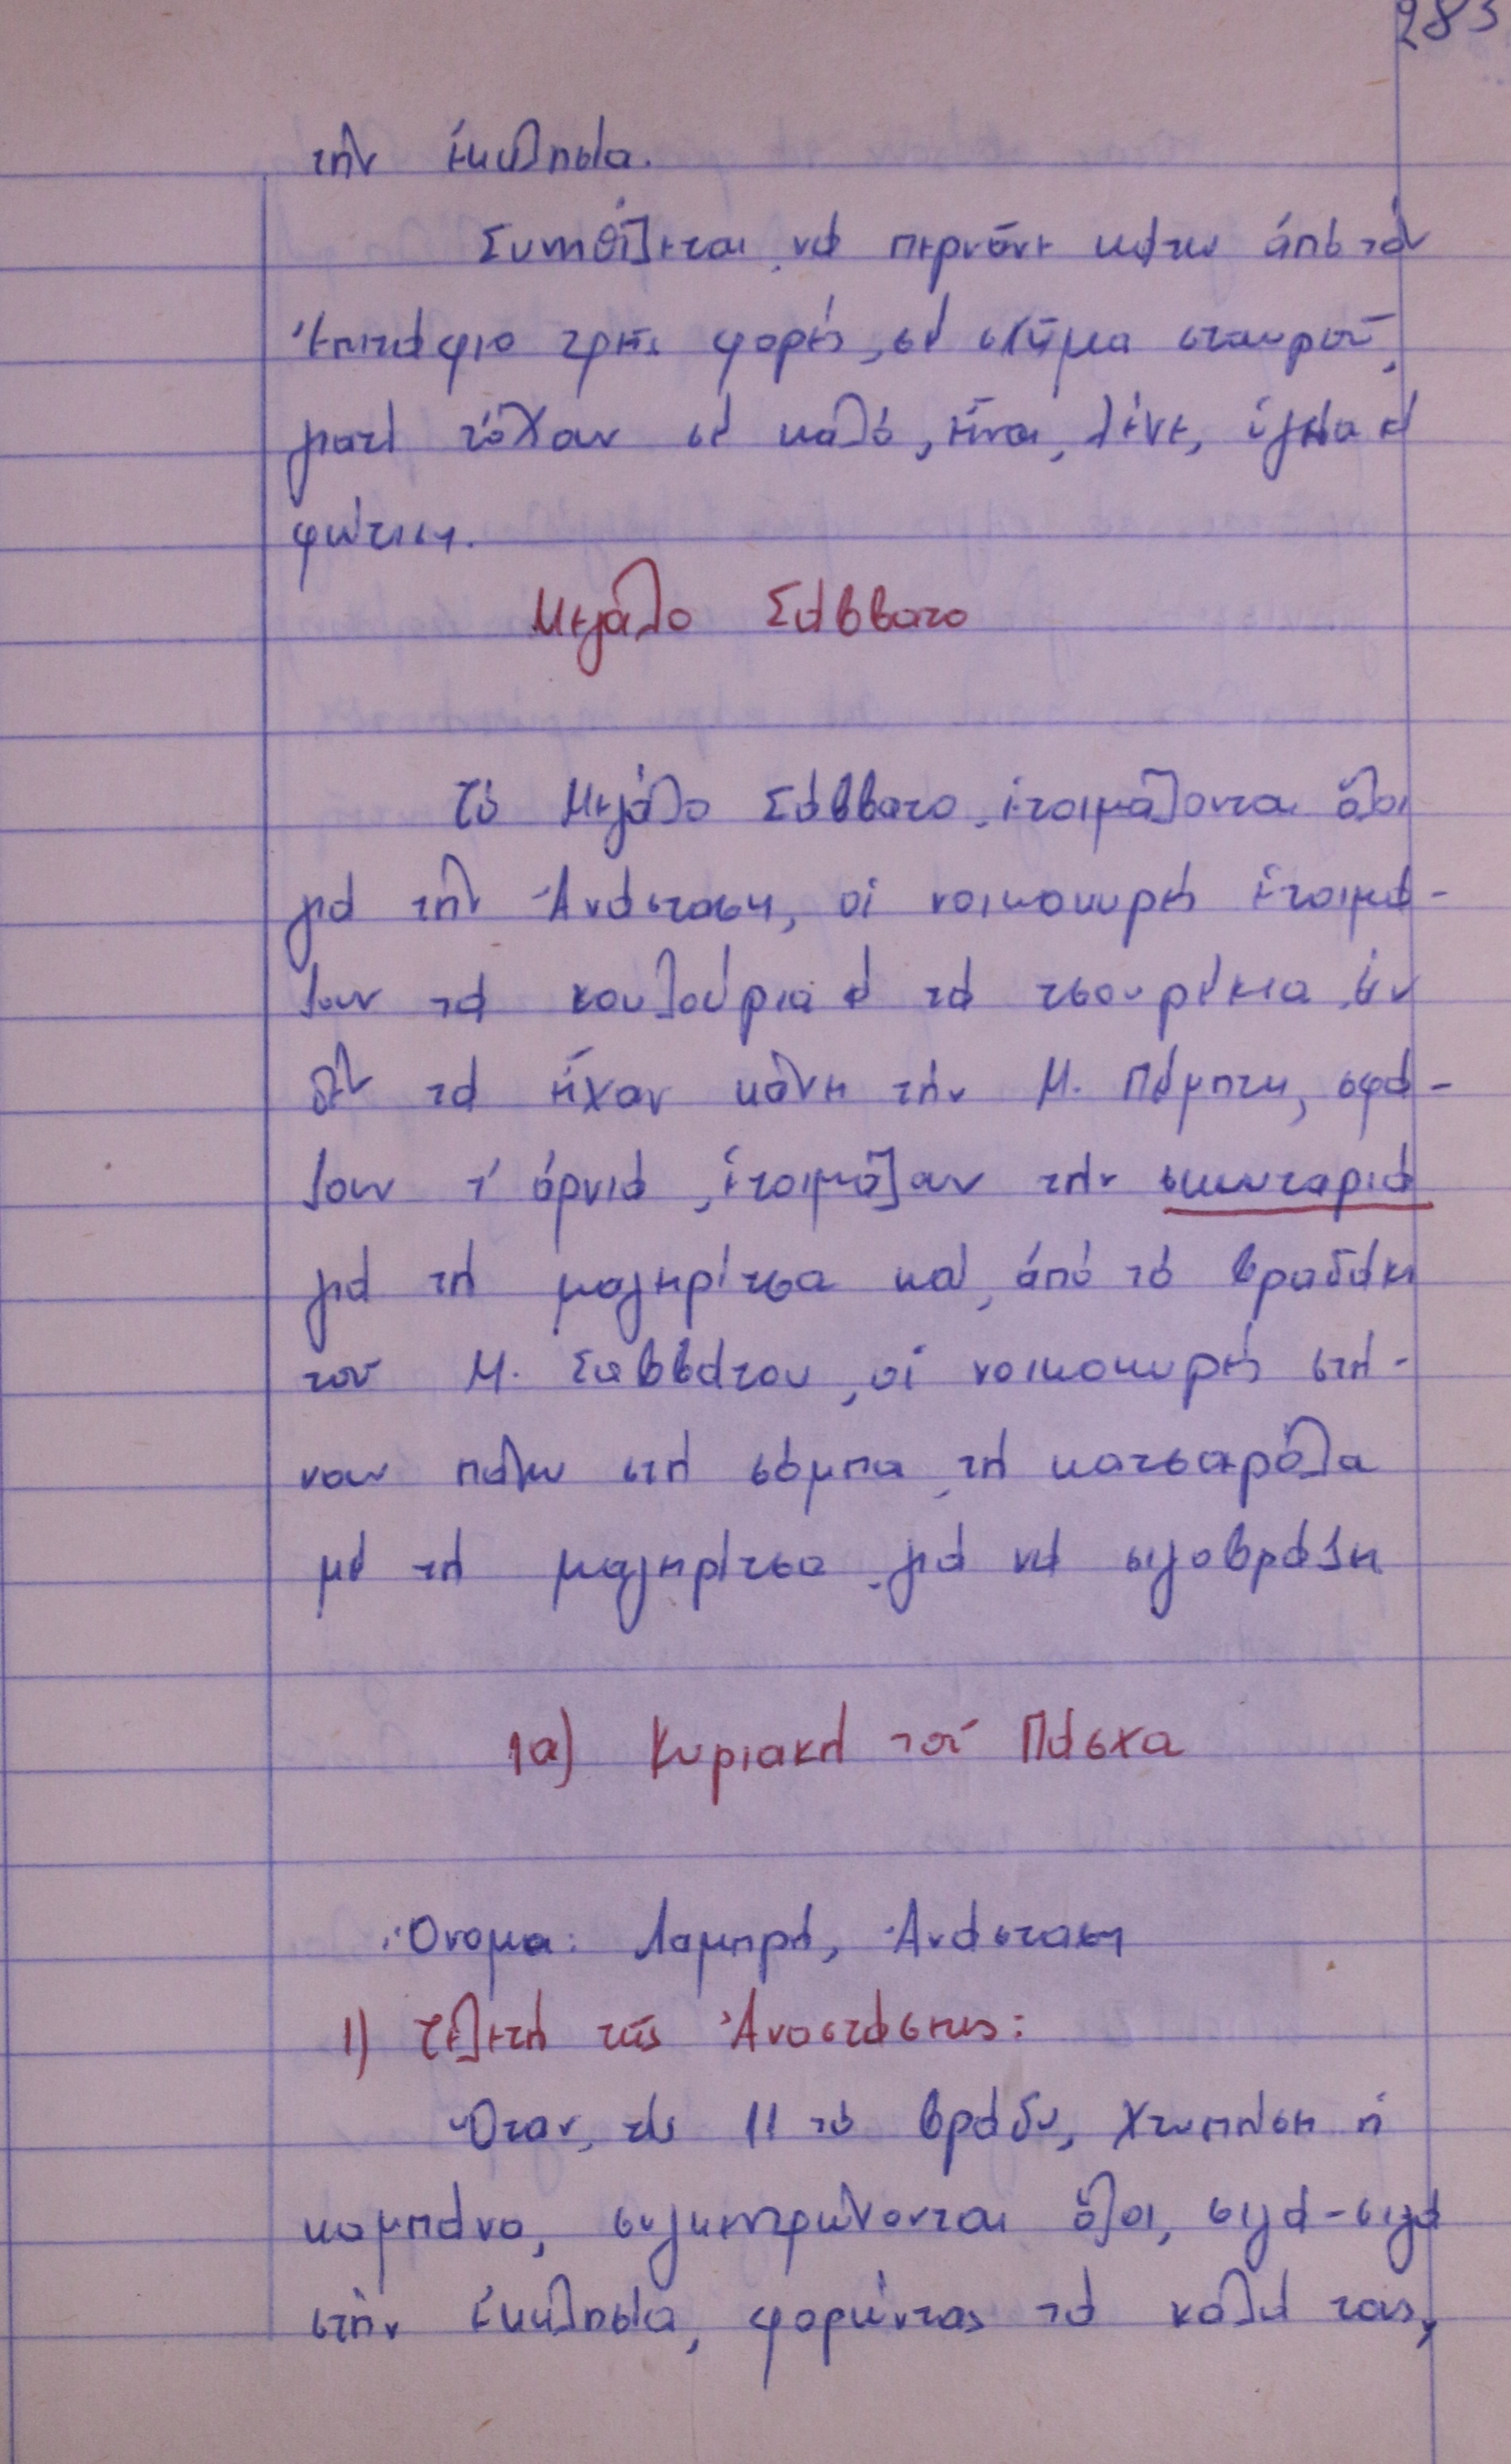 283
τήν ἐκκλησία.
Συνηθίζεται, νά περνᾶνε κάτω ἀπό τόν
Ἐπιτάφιο τρεῖς φορές, σέ σχῆμα σταυροῦ,
γιατί τὄχαν σέ καλό, εἶναι, λένε, ὑγεία κ
φώτιση.
Μεγάλο Σάββατο
Τό Μεγάλο Σάββατο, ἑτοιμάζονται ὅλοι
γιά τήν Ἀνάσταση, οἱ νοικοκυρές ἑτοιμά-
ζουν τά κουλούρια κ τά τσουρέκια, ἄν
δέν τά εἶχαν κάνει τήν Μ. Πέμπτη, σφά-
ζουν τ' ἀρνιά, ἑτοιμάζαν τήν σκωταριά
γιά τή μαγειρίτσα καί, ἀπό τό βραδάκι
τοῦ Μ. Σαββάτου, οἱ νοικοκυρές στή-
νουν πάνω στή σόμπα, τή κατσαρόλα
μέ τή μαγειρίτσα, γιά νά σιγοβράζει
1α) Κυριακή τοῦ Πάσχα
Ὄνομα: Λαμπρή, Ἀνάσταση
1) Τελετή τῆς Ἀναστάσεως:
Ὅταν, τίς 11 τό βράδυ, χτυπήσει ἡ
καμπάνα, συγκεντρώνονται ὅλοι, σιγά-σιγά
στήν ἐκκλησία, φορώντας τά καλά τους,